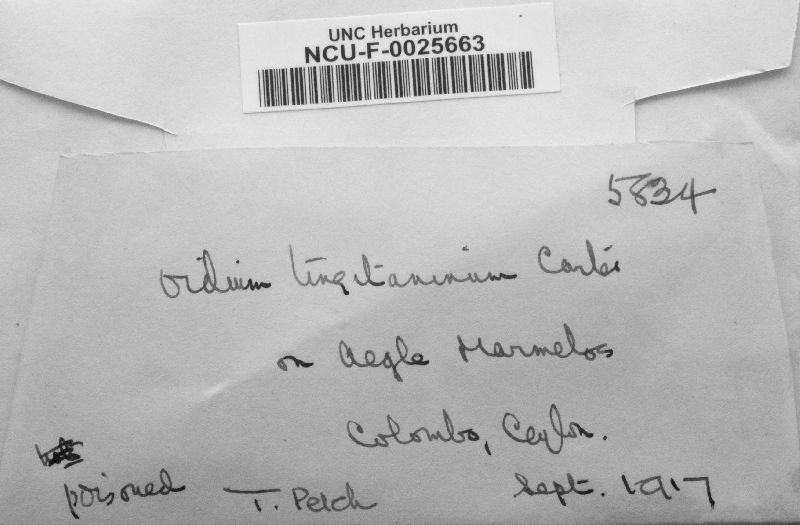 UNC Herbarium
NCU-F-0025663
5834
Oidium tingitaninum Carter
on Aegle Marmelos
Colombo, Ceylon.
poisoned T. Petch Sept. 1917